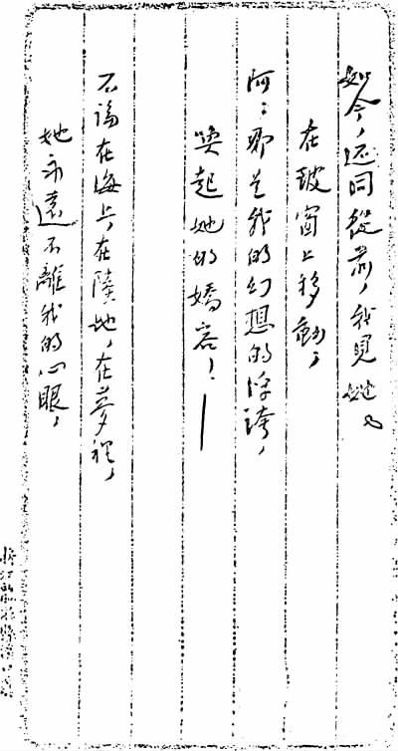 如今,还同從前,我見她。
在玻窗上移動,
阿:那是我的幻想的浮誇,
喚起她的嬌容!——
不論在海上,在陸地,在夢裡,
她永遠不離我的心眼,